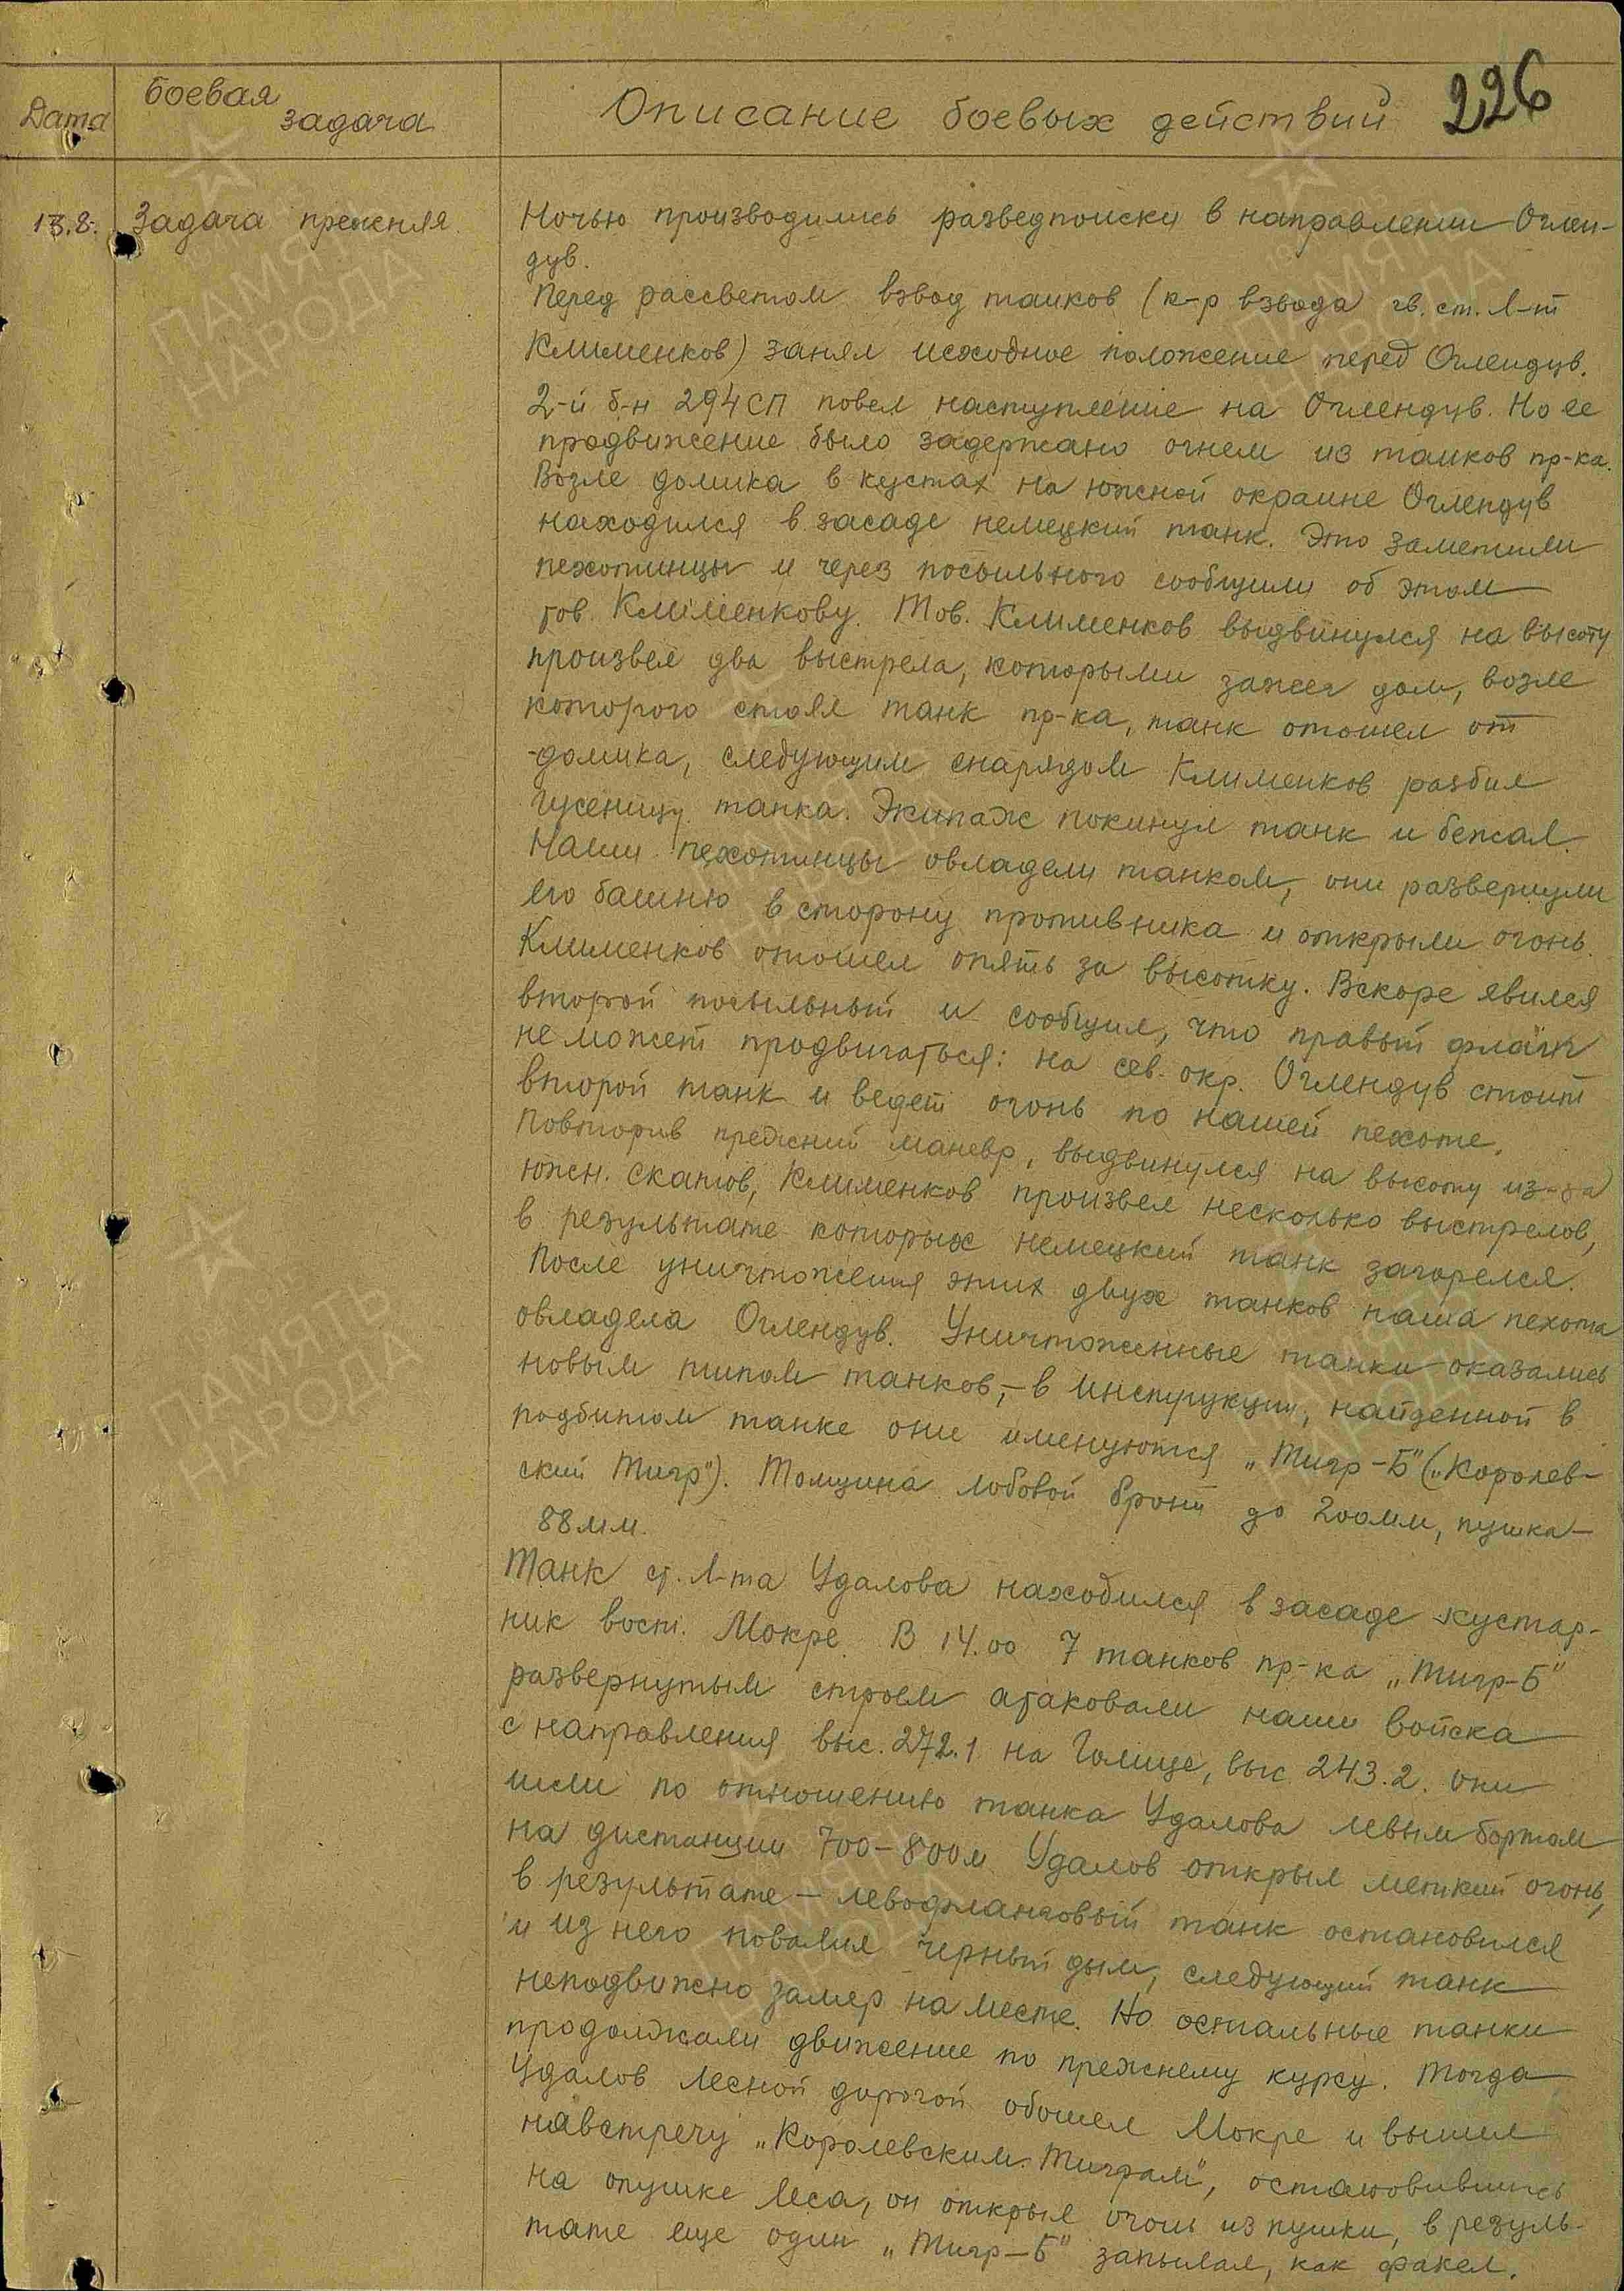 226
Дата
Боевая
задача
Описание боевых действий
13.8.
Задача прежняя
Ночью производились разведпоиски в направлении Оглен-
дув.
Перед рассветом взвод танков (к-р взвода гв. ст. л-т
Клименков) занял исходное положение перед Оглендув.
2-й б-н 294 СП повел наступление на Оглендув. Но ее
продвижение было задержано огнем из танков пр-ка.
Возле домика в кустах на южной окраине Оглендув
находился в засаде немецкий танк. Это заметили
пехотинцы и через посыльного сообщили об этом
тов. Клименкову. Тов. Клименков выдвинулся на высоту
произвел два выстрела, которыми зажег дом, возле
которого стоял танк пр-ка, танк отошел от
домика, следующим снарядом Клименков разбил
гусеницу танка. Экипаж покинул танк и бежал.
Наши пехотинцы овладели танком, они развернули
его башню в сторону противника и открыли огонь.
Клименков отошел опять за высотку. Вскоре явился
второй посыльный и сообщил, что правый фланг
не может продвигаться: на сев. окр. Оглендув стоит
второй танк и ведет огонь по нашей пехоте.
Повторив прежний маневр, выдвинулся на высоту из-за
южн. скатов, Клименков произвел несколько выстрелов,
в результате которых немецкий танк загорелся.
После уничтожения этих двух танков наша пехота
овладела Оглендув. Уничтоженные танки оказались
новым типом танков,- в инструкции, найденной в
подбитом танке они именуются „Тигр-Б" („Королев-
ский Тигр"). Толщина лобовой брони до 200мм, пушка-
88мм.
Танк ст. л-та Удалова находился в засаде кустар-
ник вост. Мокре. В 14.00 7 танков пр-ка „Тигр-Б"
развернутым строем атаковали наши войска
с направления выс. 272.1 на Голице, выс 243.2. Они
шли по отношению танка Удалова левым бортом
на дистанции 700-800м. Удалов открыл меткий огонь,
в результате - левофланговый танк остановился
и из него повалил черный дым, следующий танк
неподвижно замер на месте. Но остальные танки
продолжали движение по прежнему курсу. Тогда
Удалов лесной дорогой обошел Мокре и вышел
навстречу „Королевским Тиграм", остановившись
на опушке леса, он открыл огонь из пушки, в резуль-
тате еще один „Тигр-Б" запылал, как факел.
ПАМЯТЬ
НАРОДА